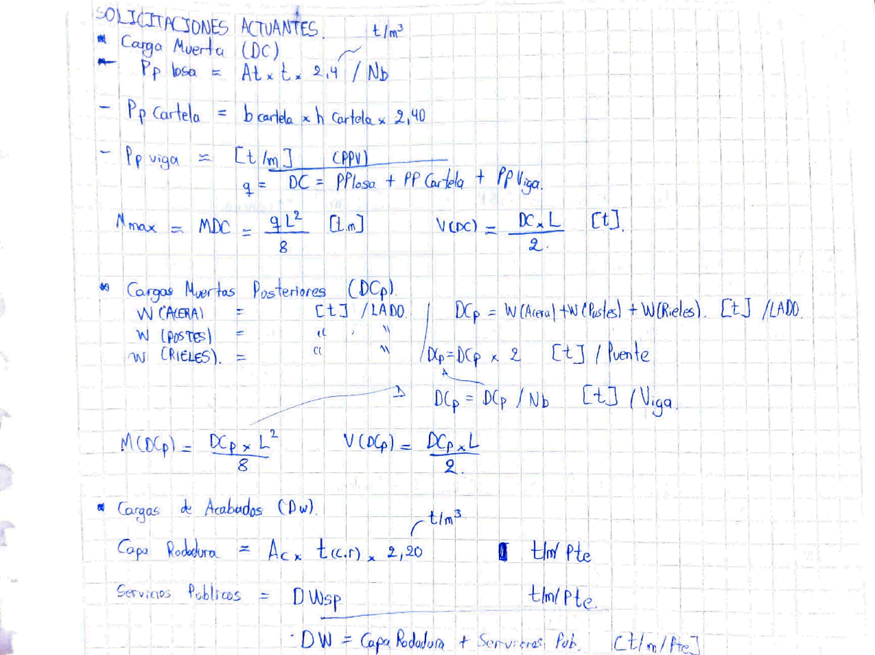 SOLICITACIONES ACTUANTES.
* Carga Muerta (DC) t/m³
- Pp losa = At x t x 2,4 / Nb
- Pp Cartela = b cartela x h Cartela x 2,40
- Pp viga = [t/m] (PPV)
q = DC = PPlosa + PP Cartela + PP Viga.
Mmax = MDC = qL²/8 [t.m] V(DC) = DC x L/2. [t].
* Cargas Muertas Posteriores (DCp)
W (ACERA) = [t] /LADO. DCp = W(Acera)+W(Postes)+W(Rieles). [t] /LADO.
W (POSTES) = " , "
W (RIELES). = " " DCp=DCp x 2 [t] / Puente
DCp = DCp / Nb [t] / Viga.
M(DCp) = DCp x L²/8 V(DCp) = DCp x L/2.
* Cargas de Acabados (Dw)
t/m³
Capa Rodadura = Ac x t(c.r) x 2,20 t/m/Pte
Servicios Publicos = DWsp t/m/Pte.
DW = Capa Rodadura + Servicios Pub. [t/m/Pte]